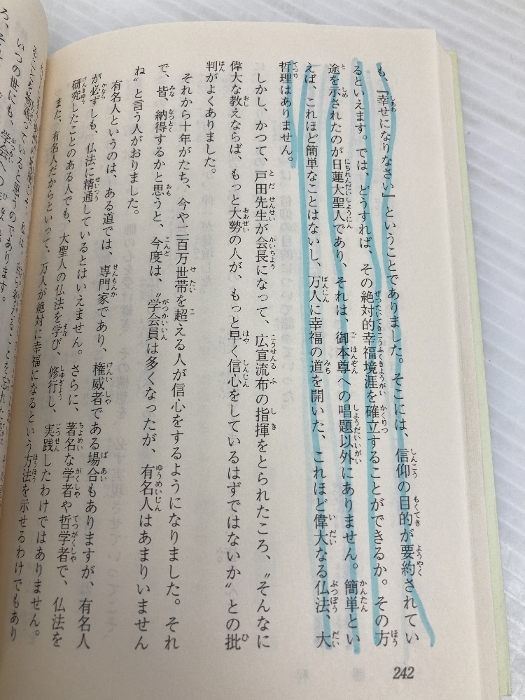 も、『幸せになりなさい』ということでありました。そこには、信仰の目的が要約されてい
るといえます。では、どうすれば、その絶対的幸福境涯を確立することができるか。その方
途を示されたのが日蓮大聖人であり、それは、御本尊への唱題以外にありません。簡単とい
えば、これほど簡単なことはないし、万人に幸福の道を開いた、これほど偉大なる仏法、大
哲理はありません。
しかし、かつて、戸田先生が会長になって、広宣流布の指揮をとられたころ、〝そんなに
偉大な教えならば、もっと大勢の人が、もっと早く信心をしているはずではないか〟との批
判がよくありました。
それから十年がたち、今や二百万世帯を超える人が信心をするようになりました。それ
で、皆、納得するかと思うと、今度は、〝学会員は多くなったが、有名人はあまりいません
ね〟と言う人がおりました。
有名人というのは、ある道では、専門家であり、権威者である場合もありますが、有名人
が必ずしも、仏法に精通しているとはいえません。さらに、著名な学者や哲学者で、仏法を
研究したことのある人でも、大聖人の仏法を学び、修行し、実践したわけではありません。
また、有名人だからといって、万人が絶対に幸福になるという方法を示せるわけでもあり
242